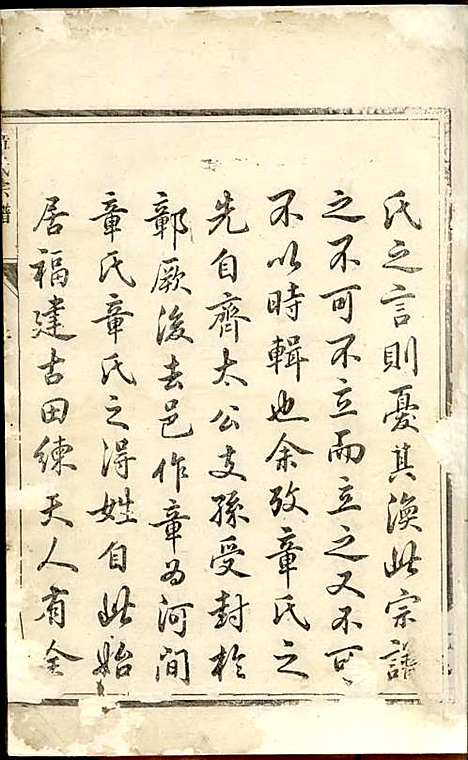 氏之言則憂其渙此宗譜
之不可不立而立之又不可
不以時輯也余攷章氏之
先自齊太公支孫受封於
鄣厥後去邑作章為河間
章氏章氏之得姓自此始
居福建古田練夫人有全
宗譜